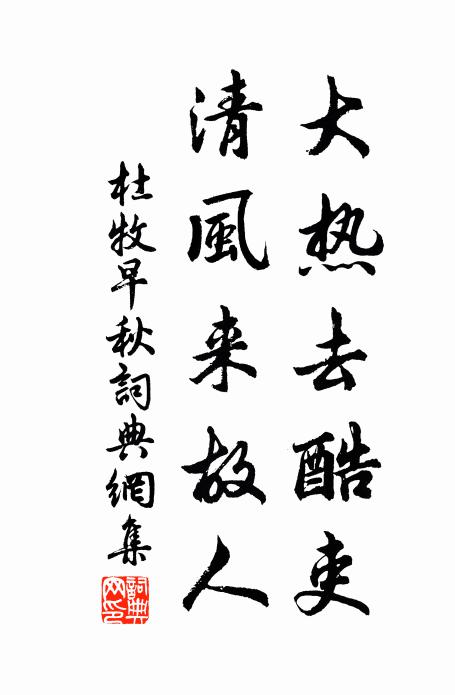 大热去酷吏
清風来故人
杜牧早秋詞典網集
詞典
网印